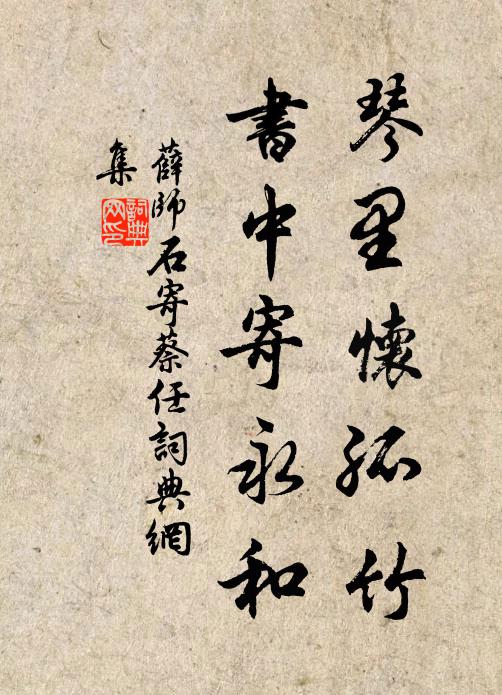 琴里懷孤竹
書中寄永和
薛師石寄蔡任詞典網
集
詞典網印